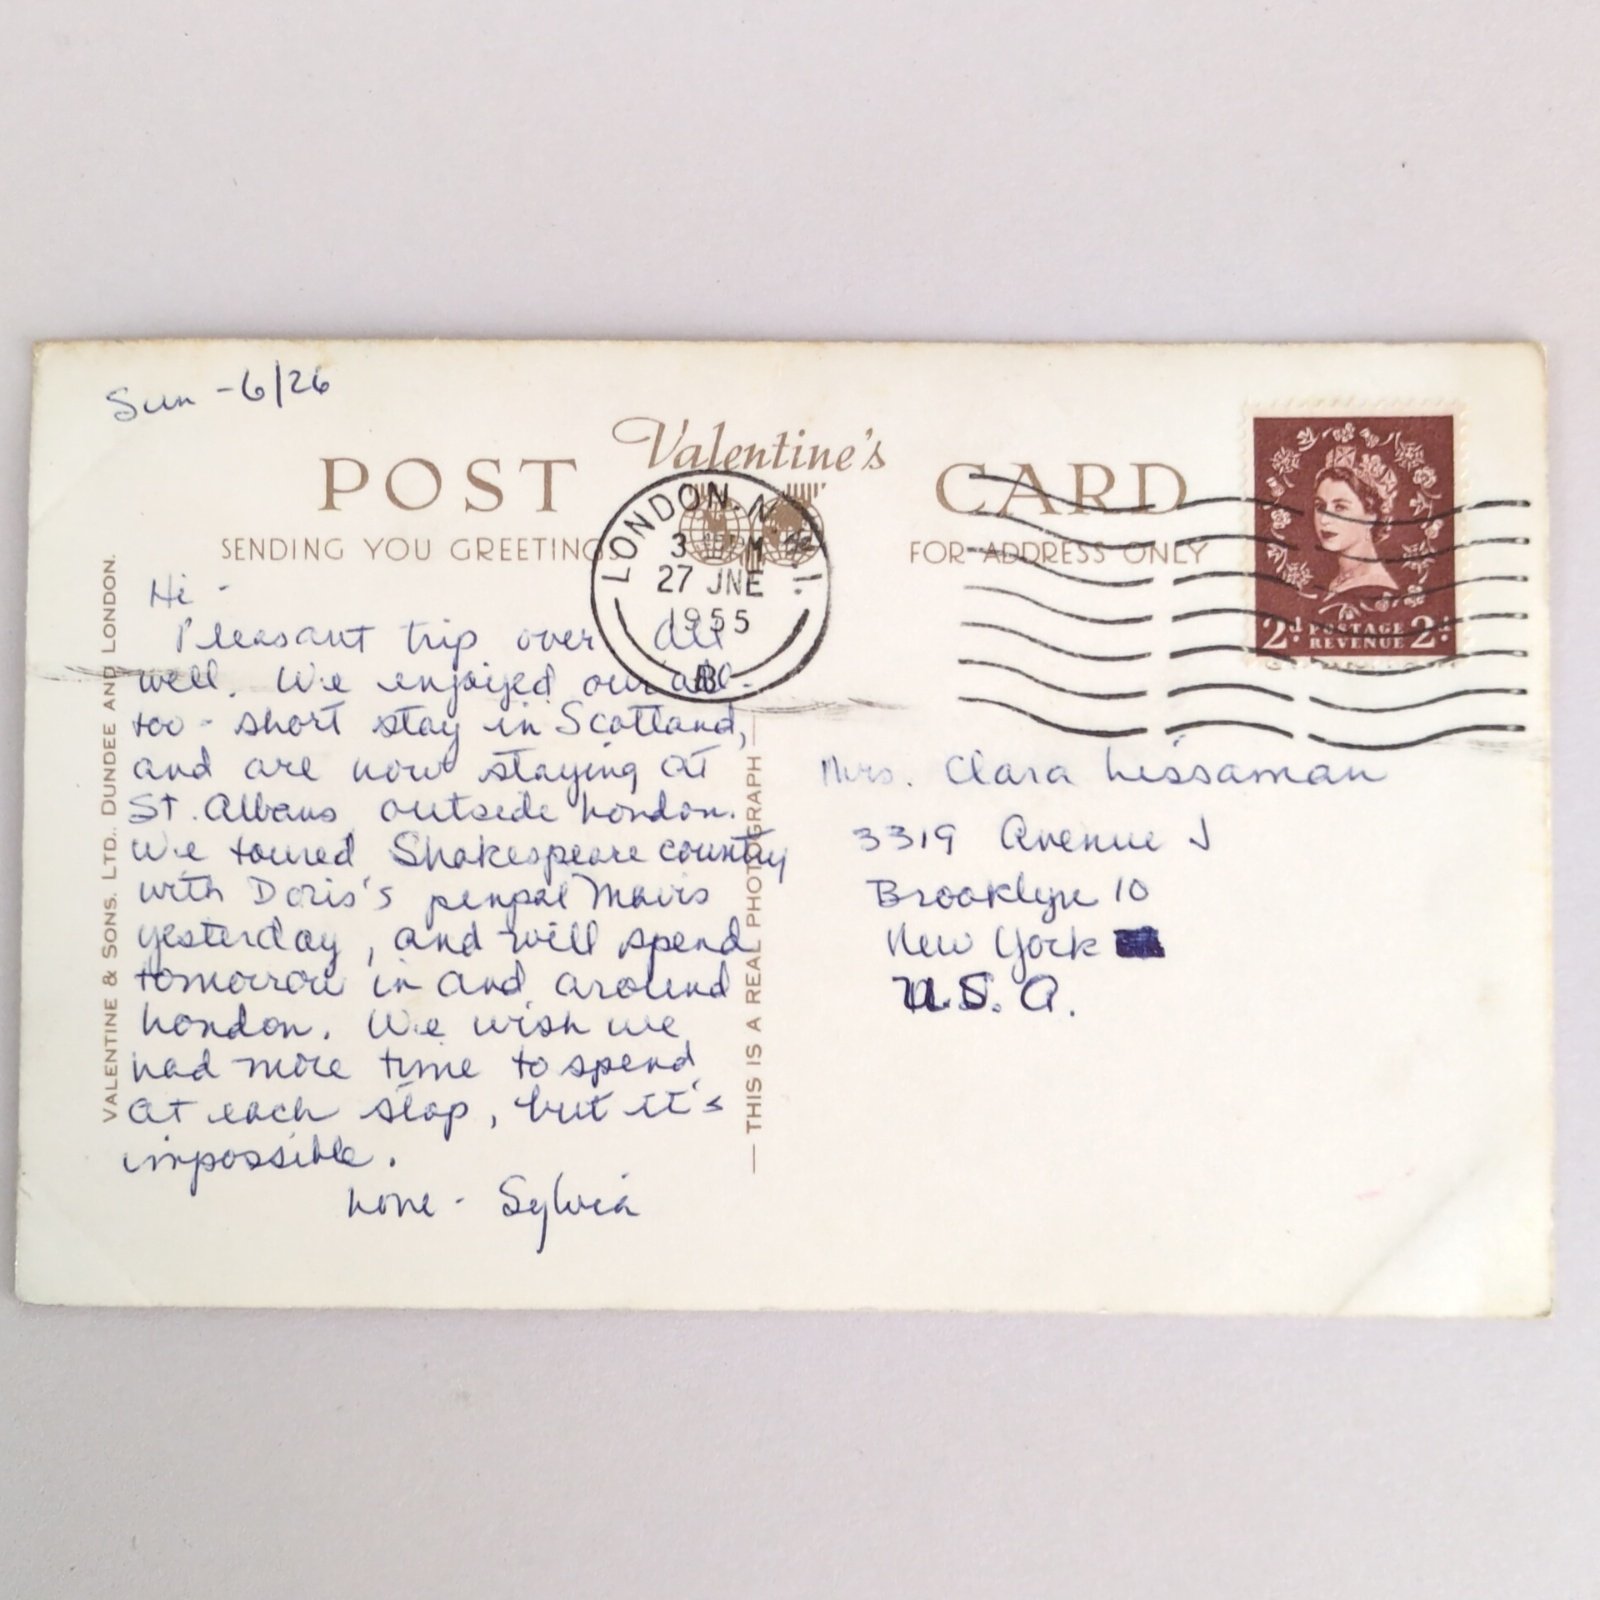 Sun - 6/26
Valentine's
POST CARD
SENDING YOU GREETINGS
FOR ADDRESS ONLY
LONDON. N.W.1
3 PM
27 JNE
1955
B
2d POSTAGE REVENUE 2d
VALENTINE & SONS. LTD., DUNDEE AND LONDON.
Hi -
Pleasant trip over. All
well. We enjoyed our all-
too-short stay in Scotland,
and are now staying at
St. Albans outside London.
We toured Shakespeare country
with Doris's penpal Mavis
yesterday, and will spend
tomorrow in and around
London. We wish we
had more time to spend
at each stop, but it's
impossible.
Love - Sylvia
— THIS IS A REAL PHOTOGRAPH —
Mrs. Clara Lissaman
3319 Avenue J
Brooklyn 10
New York
U.S.A.